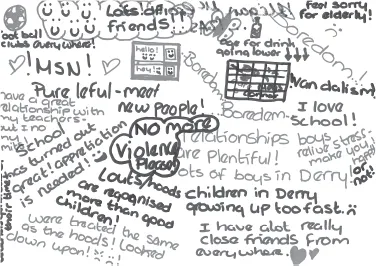 Lots of
friends
feel sorry
for elderly!
football
clubs everywhere!
hello!
hey!
age for drink
going lower
Boredom..
Boredom
Boredom
MSN!
Pure leful-meet
new people!
Vandalism!
I love
school!
have a great
relationship with
my teacher
but I no
School
has turned out
great! appreciation
is needed!
NO more
Violence
Please
relationships
are plentiful!
lots of boys in Derry!
boys stress-
relive make you
happy!
or
not!
Louts/hoods
are recognised
more than good
children!
children in Derry
growing up too fast.
their time
were treated the same
as the hoods! Looked
down upon!
I have alot really
close friends from
everywhere.